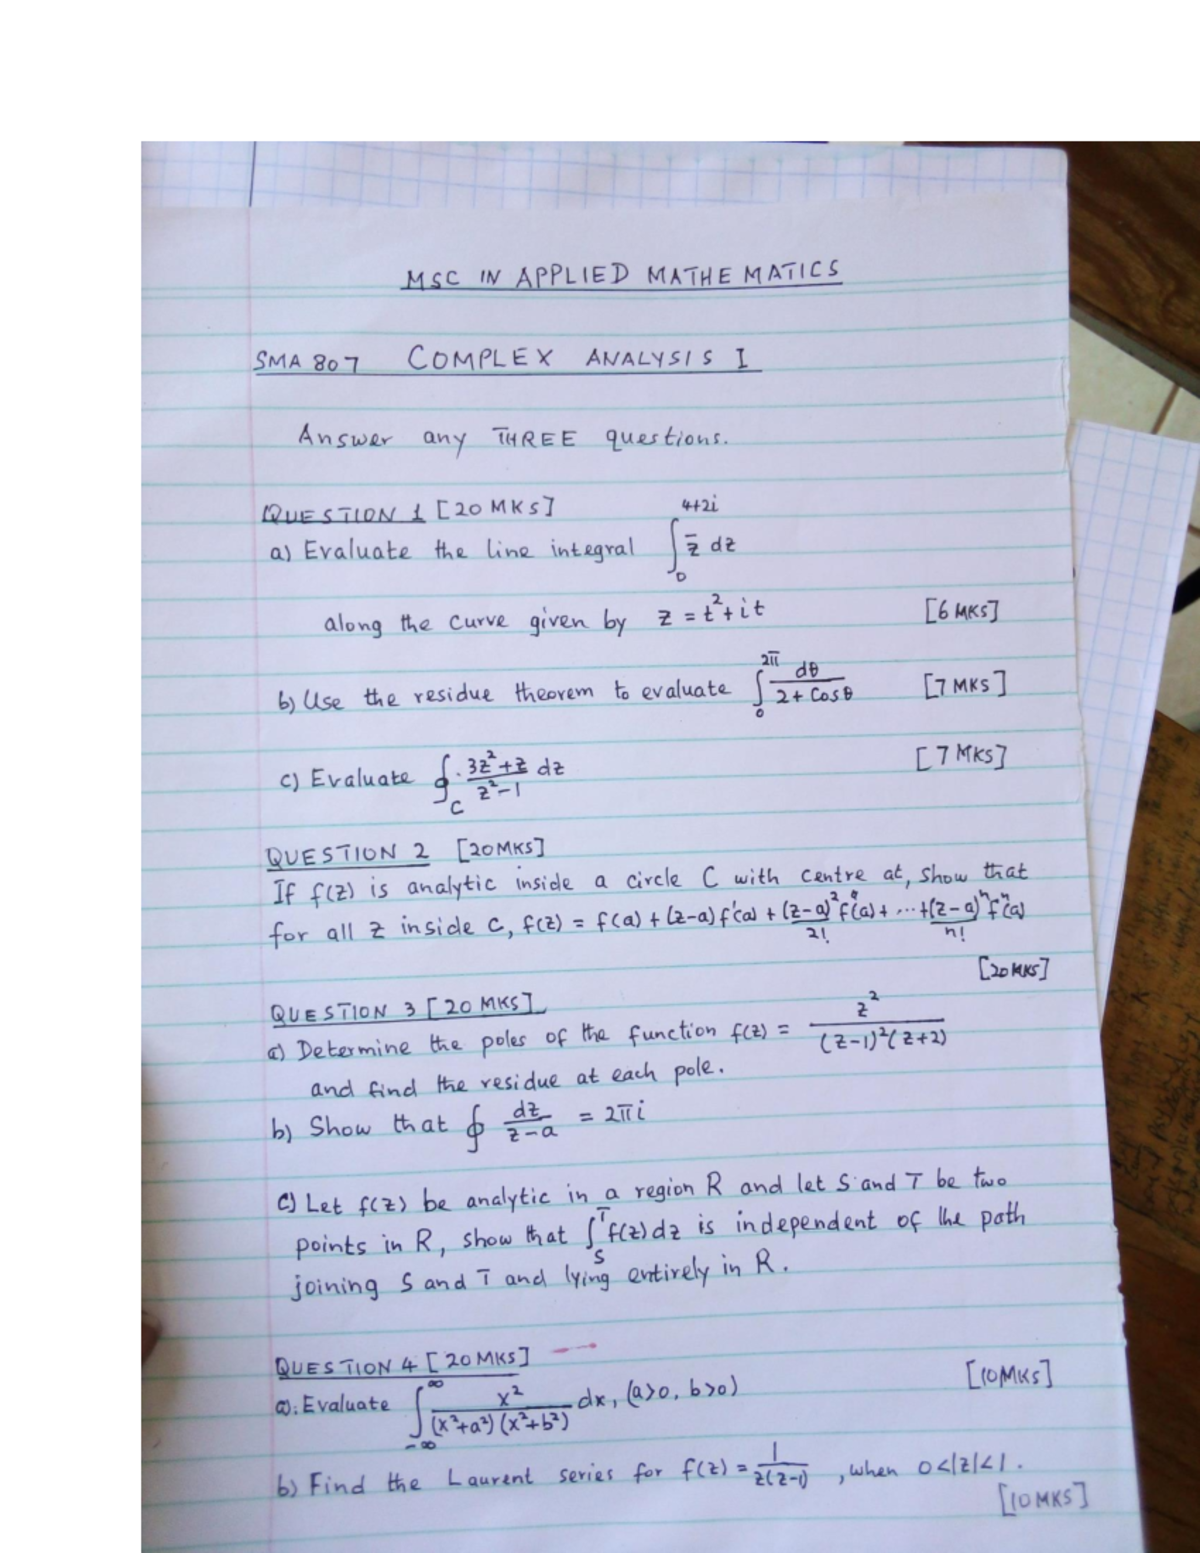 MSC IN APPLIED MATHEMATICS
SMA 807 COMPLEX ANALYSIS I
Answer any THREE questions.
QUESTION 1 [20 MKS]
a) Evaluate the line integral ∫₀^{4+2i} z̄ dz
along the curve given by z = t² + it [6 MKS]
b) Use the residue theorem to evaluate ∫₀^{2π} dθ/(2 + Cosθ) [7 MKS]
c) Evaluate ∮_C (3z² + z)/(z² - 1) dz [7 MKS]
QUESTION 2 [20MKS]
If f(z) is analytic inside a circle C with centre at, show that
for all z inside C, f(z) = f(a) + (z-a)f'(a) + (z-a)²/2! f''(a) + ... + (z-a)ⁿ/n! fⁿ(a)
[20MKS]
QUESTION 3 [20 MKS]
a) Determine the poles of the function f(z) = z²/((z-1)²(z+2))
and find the residue at each pole.
b) Show that ∮ dz/(z-a) = 2πi
c) Let f(z) be analytic in a region R and let S and T be two
points in R, show that ∫_S^T f(z)dz is independent of the path
joining S and T and lying entirely in R.
QUESTION 4 [20 MKS]
a). Evaluate ∫_{-∞}^{∞} x²/((x²+a²)(x²+b²)) dx, (a>0, b>0) [10MKS]
b) Find the Laurent series for f(z) = 1/(z(z-1)), when 0<|z|<1.
[10MKS]